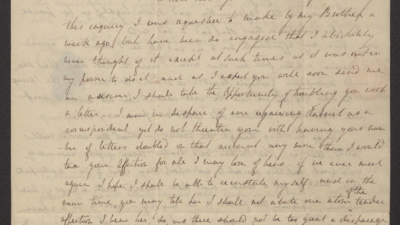 this enquiry I was requested to make by my Brother a
week ago, but have been so engaged that I absolutely
never thought of it except at such times as it was not in
my power to do it, and as I expect you will soon send me
an answer I should take the opportunity of troubling you with
a letter. I am in despair of ever regaining as a
correspondent, yet do not threaten you with having your num
ber of letters doubled on that account, very sure then I would
your affection for ale I may lose of hers. if we ever meet
again I hope I shall be able to reinstate myself, and in the
mean time, you may tell her I should not abate one atom of the tender
affection I bear her, so and there should not be too great a disparage